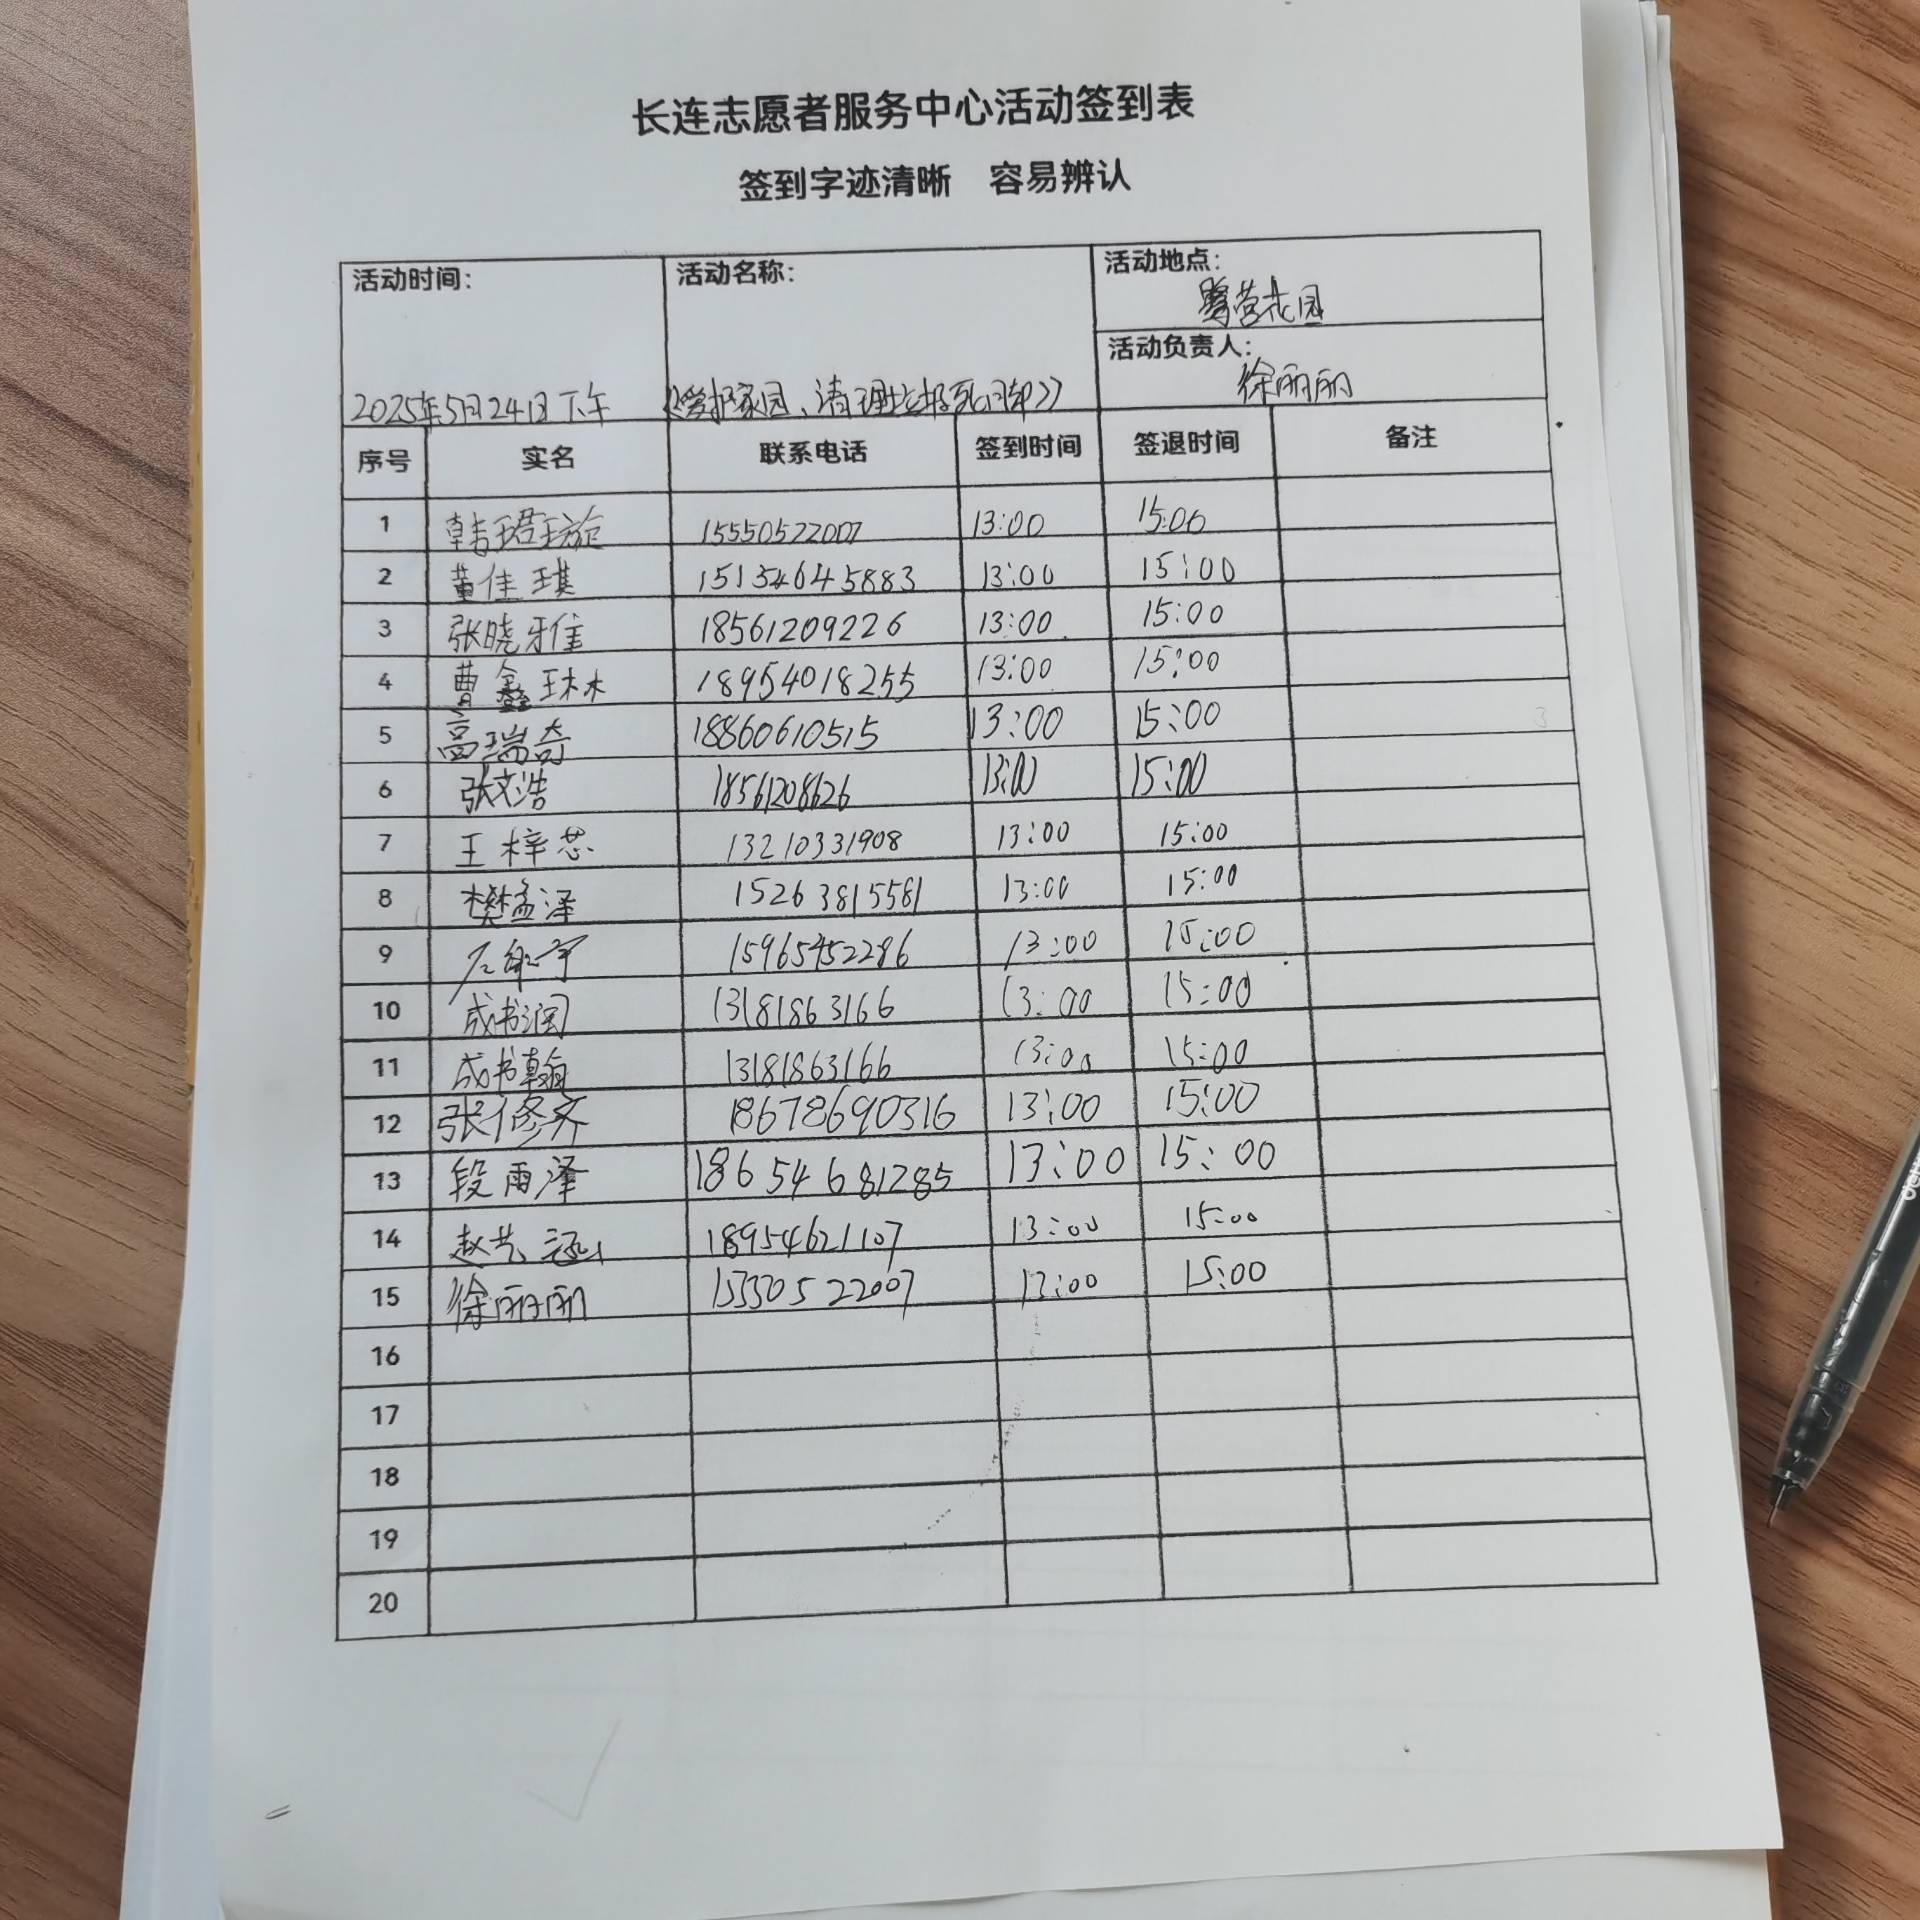 长连志愿者服务中心活动签到表
签到字迹清晰 容易辨认
活动时间: 活动名称: 活动地点:
营花园
活动负责人:
徐丽丽
2025年5月24日下午 《爱护家园、清理垃圾死角》
序号 实名 联系电话 签到时间 签退时间 备注
1 韩珺璇 15550522007 13:00 15:00
2 董佳琪 15154645883 13:00 15:00
3 张晓雅 18561209226 13:00 15:00
4 曹鑫琳 18954018255 13:00 15:00
5 高瑞奇 18860610515 13:00 15:00
6 张文浩 18561208626 13:00 15:00
7 王梓芯 13210331908 13:00 15:00
8 樊孟泽 15263815581 13:00 15:00
9 15965452286 13:00 15:00
10 成书润 13181863166 13:00 15:00
11 成书翰 13181863166 13:00 15:00
12 张修齐 18678690316 13:00 15:00
13 段雨泽 18654681285 13:00 15:00
14 赵艺涵 18954621107 13:00 15:00
15 徐丽丽 15550522007 13:00 15:00
16
17
18
19
20